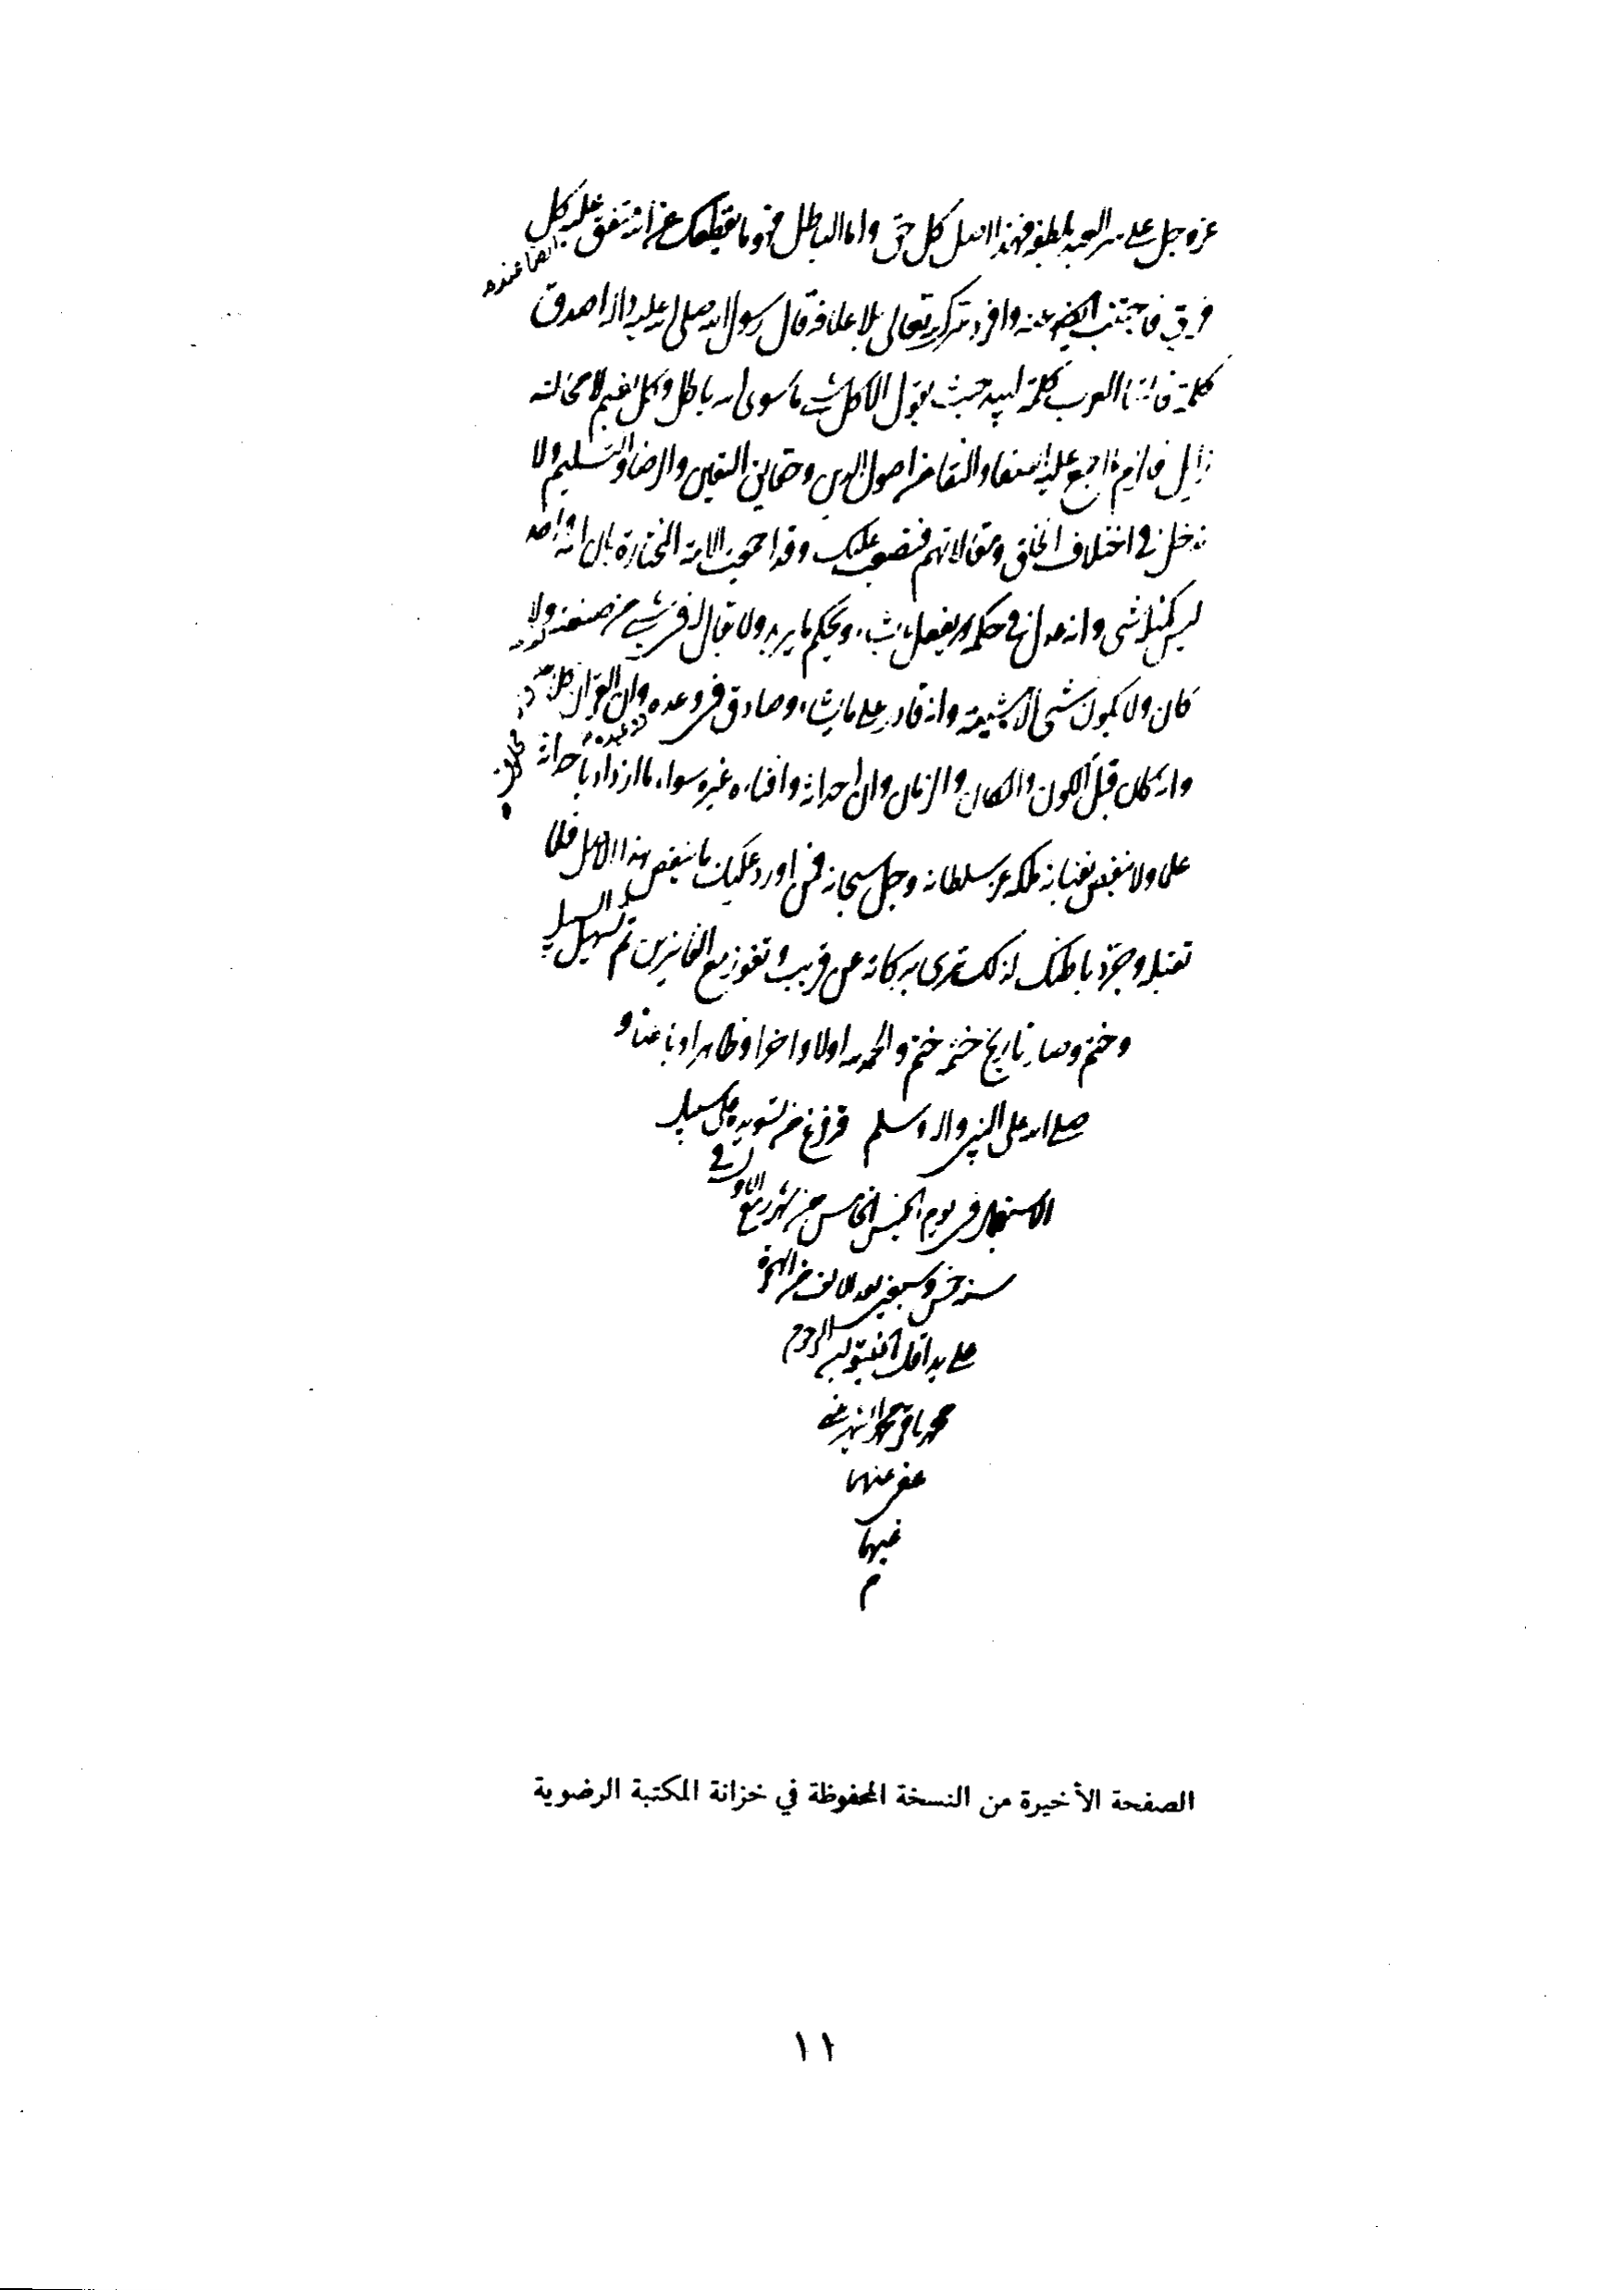 عز وجل على سر العبد بلطفه فهذا اصل كل حق واما الباطل فهو ما يقطعك عن الله متفق عليه كل
ايضا عنده
فريق فاجتنب عنه وافرد سرك لله تعالى بلا علاقة قال رسول الله صلى الله عليه واله اصدق
كلمة قالتها العرب كلمة لبيد حيث يقول الا كل شئ ما سوى الله باطل وكل نعيم لا محالة
زايل فالزم ما اجمع عليه الصفا والتقا من اصول الدين وحقايق اليقين والرضا والتسليم ولا
تدخل في اختلاف الخلق ومقالاتهم فتصعب عليك وقد اجمعت الامة المختارة بان الله واحد
ليس كمثله شئ وانه عدل في حكمه يفعل ما يشاء ويحكم ما يريد ولا يقال له في شئ من صنعه لم ولا
كان ولا يكون شئ الا بمشيته وانه قادر على ما يشاء وصادق في وعده ووعيده وان القرآن كلامه
وانه كان قبل الكون والمكان والزمان وان احداثه وافناءه غيره سواء ما ازداد باحداثه
علما ولا ينقص بفنائه ملكه عز سلطانه وجل سبحانه فمن اورد عليك ما ينقض هذا الاصل فلا
تقبله وجرد باطنك لذلك ترى بركاته عن قريب وتفوز مع الفايزين تم
وختم وصار تاريخ ختمه ختم والحمد لله اولا واخرا وظاهرا وباطنا و
صلى الله على النبي واله وسلم فرغ من تسويده على سبيل
الاستعجال في يوم الخميس الخامس من شهر ربيع
سنة خمس وسبعين بعد الالف من الهجرة
على يد اقل
محمد باقر
عفى عنهما
م
الصفحة الأخيرة من النسخة المحفوظة في خزانة المكتبة الرضوية
١١